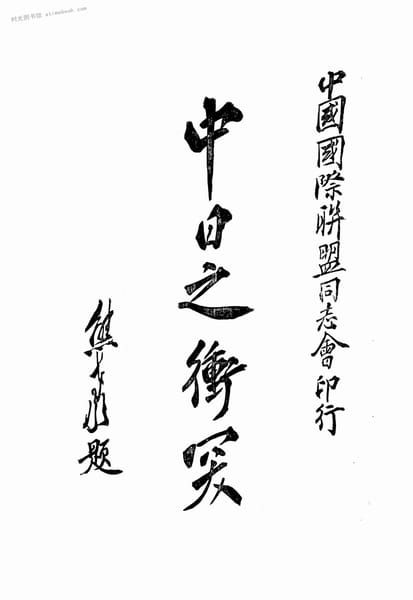 时光图书馆 atimebook.com
中國國際聯盟同志會印行
中日之衝突
熊題